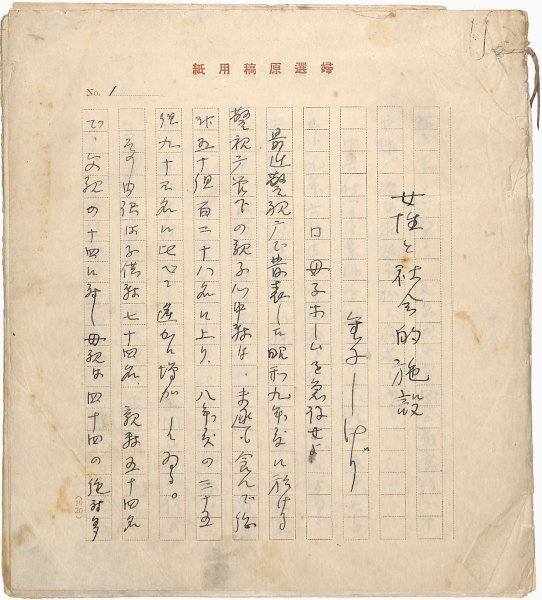 婦選原稿用紙
No. 1
女性と社会的施設
金子しげり
母子ホームを急設せよ
最近警視庁で発表した昭和九年度に於ける
警視庁管下の親子心中数は、未遂も含んで総
計五十組百二十八名に上り、八年度の三十五
組九十三名に比べて遙かに増加してゐる。
その内訳は子供数七十四名、親数五十四名
で、父親の十四に対し母親は四十四の絶対多
(10 20)